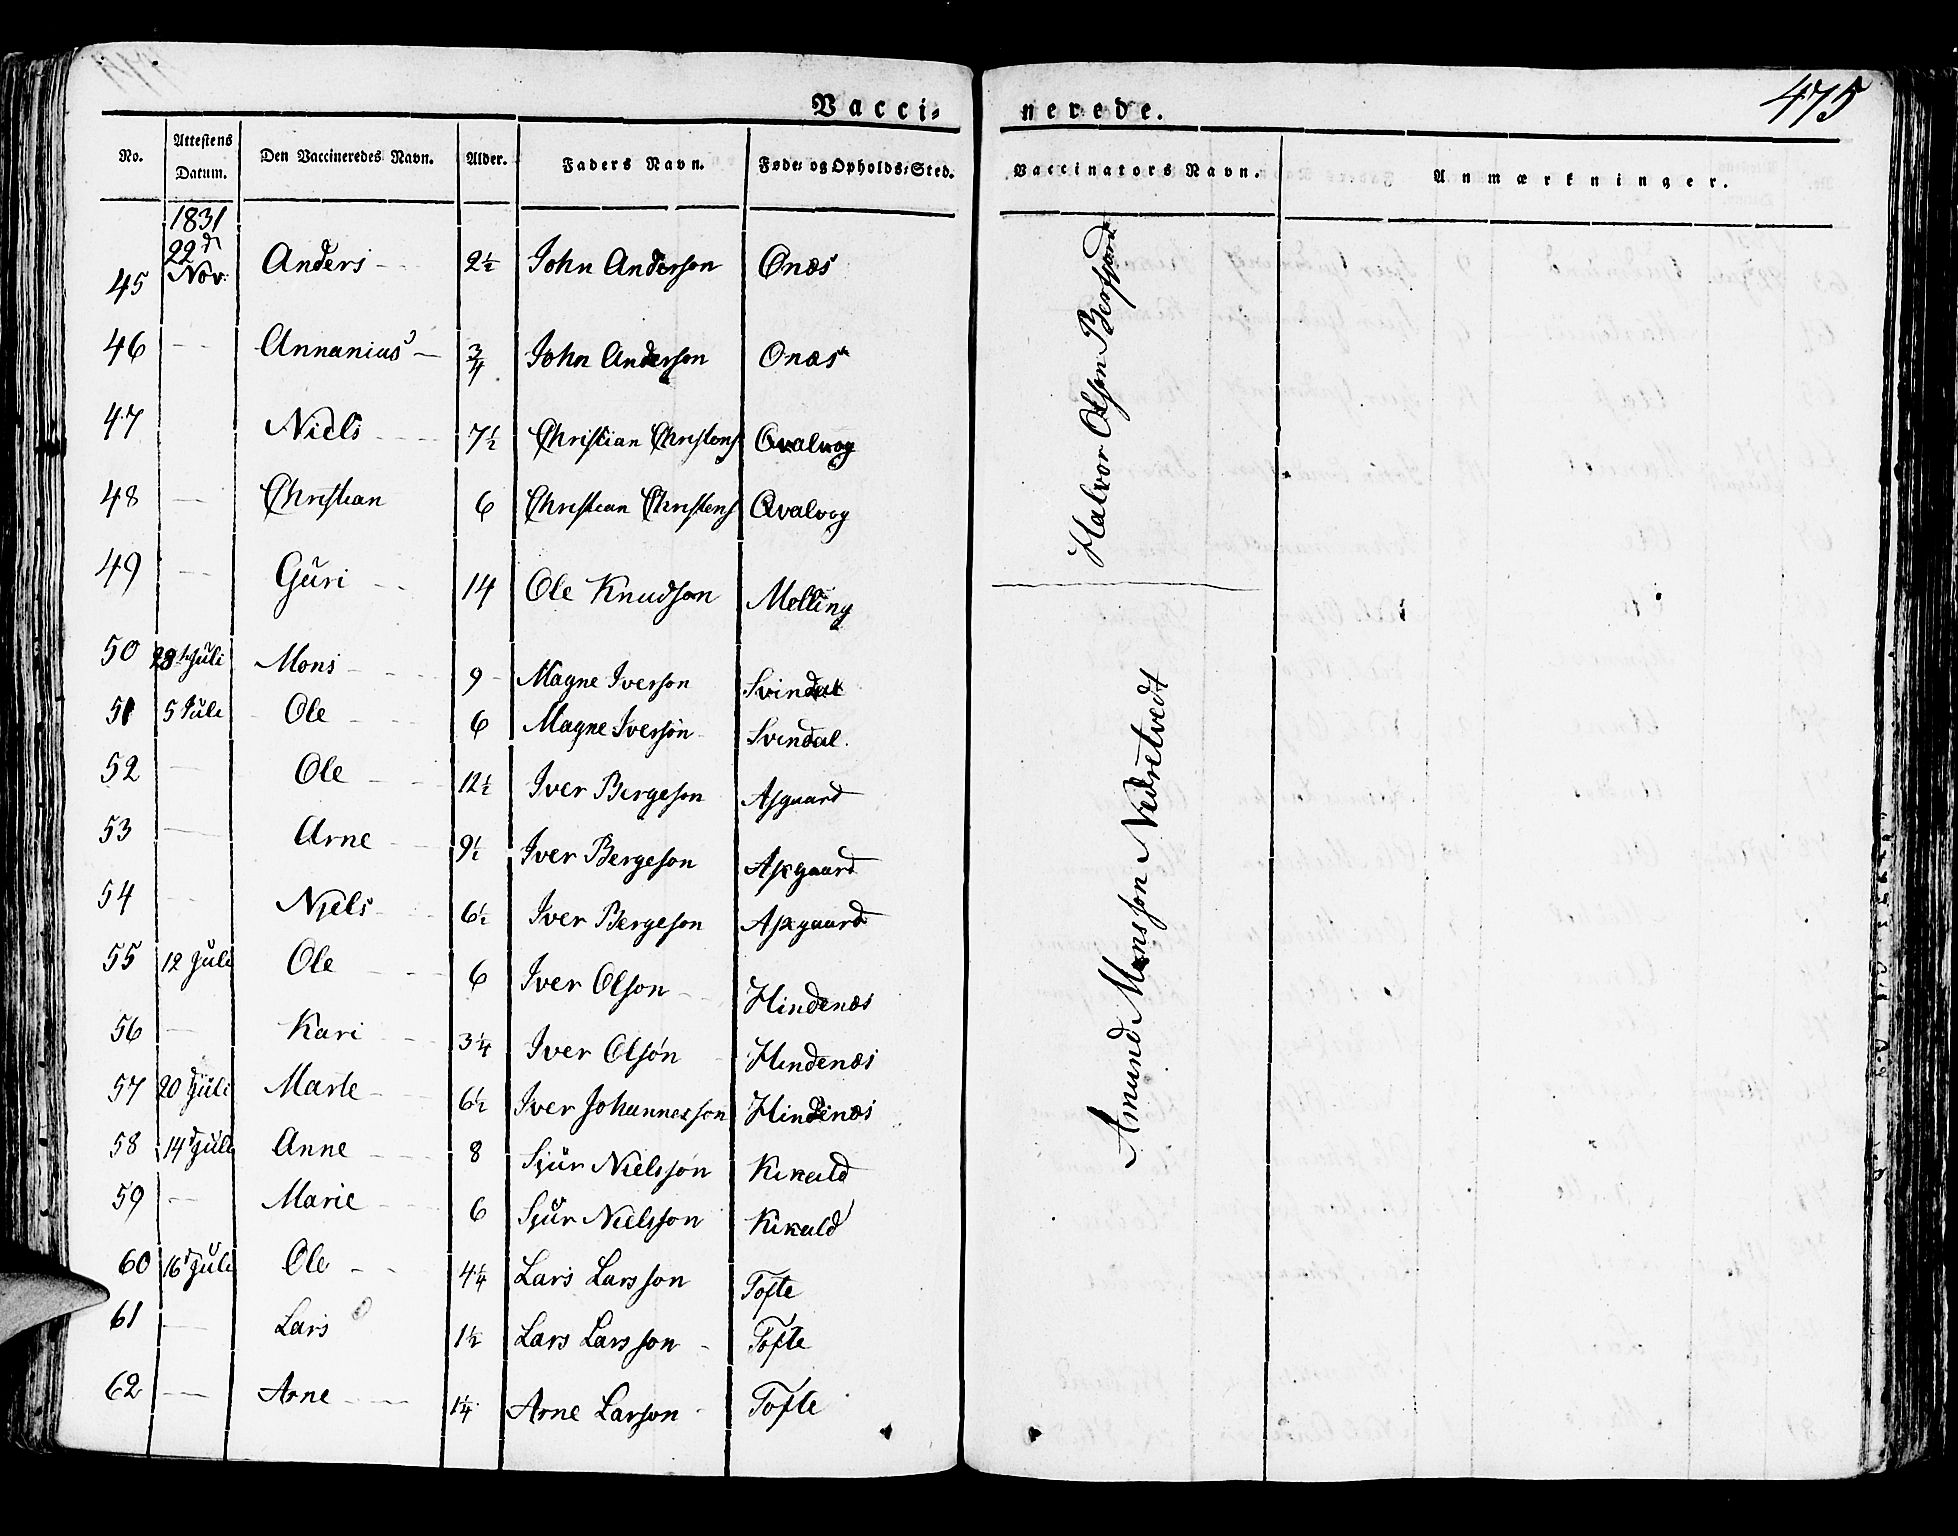 475
Vacci- nerede.
No. Attestens Datum. Den Vaccineredes Navn. Alder. Faders Navn. Føde- og Opholds-Sted. Vaccinators Navn. Anmærkninger.
1831
45 22d Nov. Anders 2½ John Anderson Onæs
46 — Annanias — ¾ John Anderson Onæs
47 Niels 7½ Christian Christens Qvalvog
48 — Christian 6 Christian Christens Qvalvog
49 — Guri 14 Ole Knudson Melling
Halvor Olson Berfjord
50 28 Juli Mons 9 Magne Iverson Svindal
51 5 Juli Ole 6 Magne Iverson Svindal.
52 — Ole 12½ Iver Bergeson Asgaard
53 — Arne 9½ Iver Bergeson Axgaard
54 — Njels 6½ Iver Bergeson Axgaard
55 12 Juli Ole 6 Iver Olson Hindenæs
56 — Kari 3¼ Iver Olsön Hindenæs
57 20d Juli Marte 6½ Iver Johannesson Hindenæs
58 14d Juli Anne 8 Sjur Nielssön Kikald
59 — Marie 6 Sjur Nielsson Kikald
60 16d Juli Ole 4¼ Lars Larsson Tofte
61 — Lars 1½ Lars Larsson Tofte
62 — Arne 1¼ Arne Larson Tofte
Amund Monsson Nedretvedt